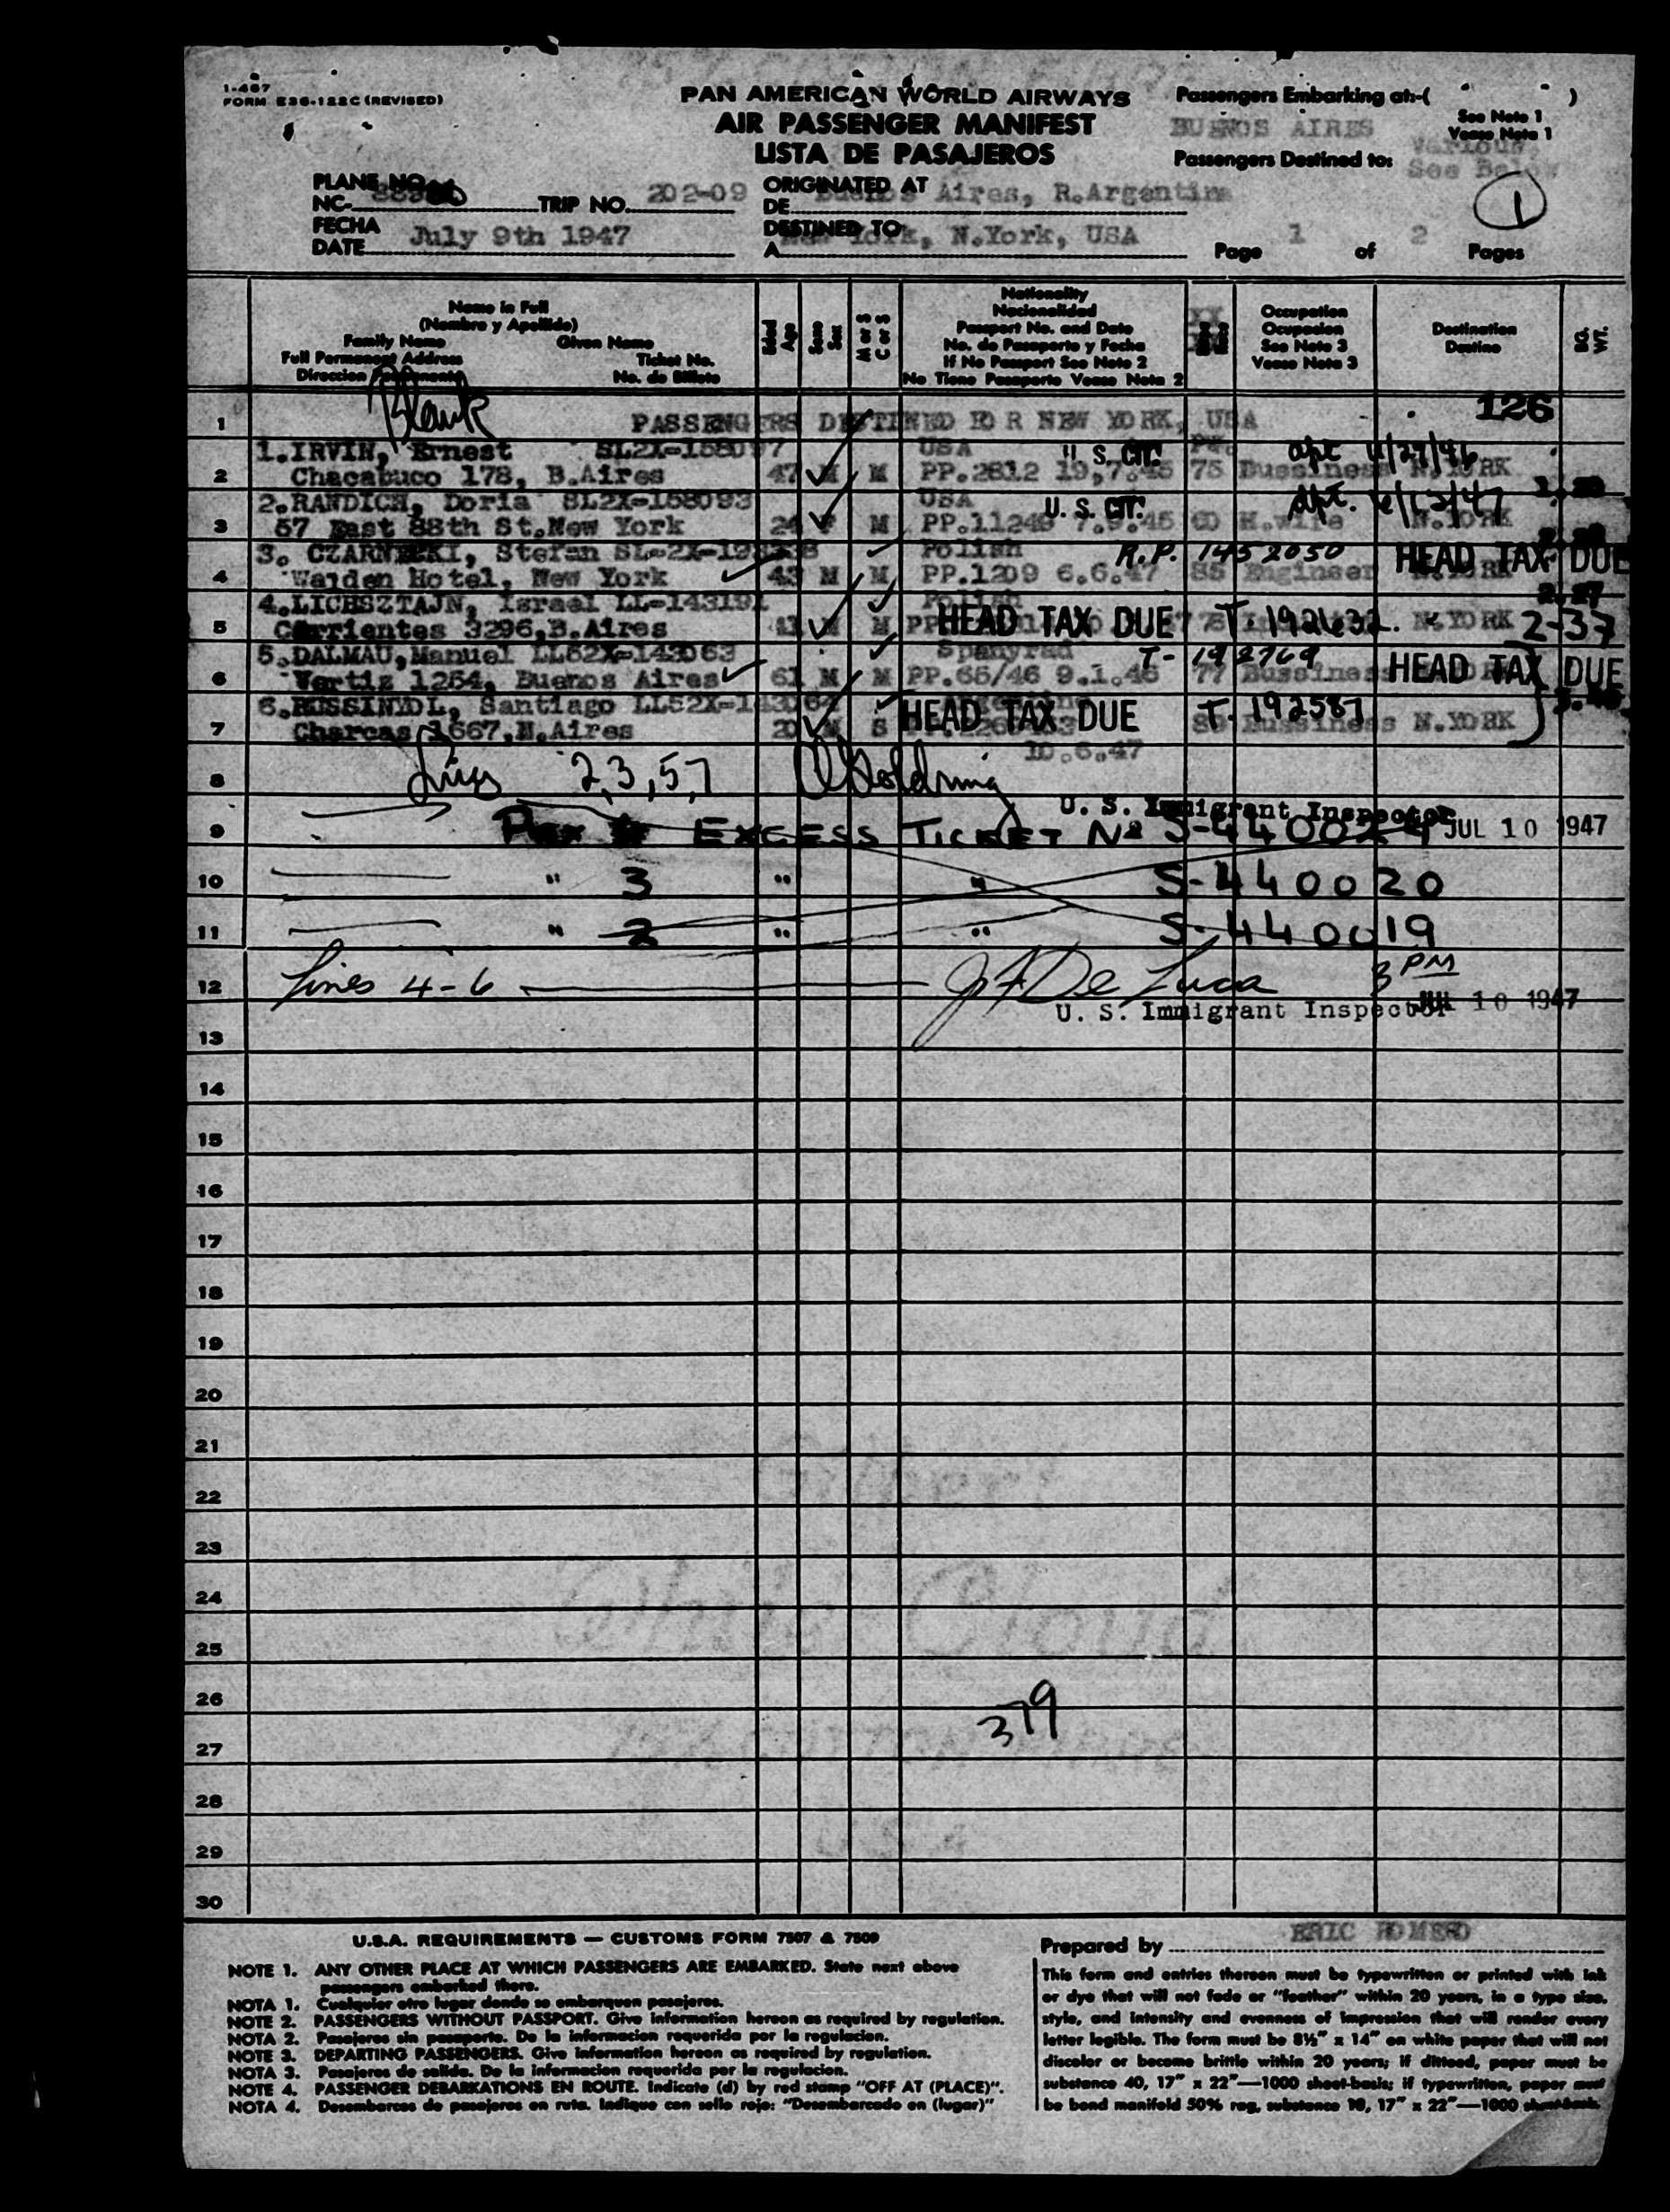 1-467
FORM E36-122C (REVISED)
PAN AMERICAN WORLD AIRWAYS
AIR PASSENGER MANIFEST
LISTA DE PASAJEROS
Passengers Embarking at:-( )
See Note 1
Vease Nota 1
BUENOS AIRES
Passengers Destined to:
Various,
See Below
1
PLANE NO.
NC.
TRIP NO. 202-09
ORIGINATED AT
DE Buenos Aires, R.Argentina
FECHA
DATE July 9th 1947
DESTINED TO
A New York, N.York, USA
Page 1 of 2 Pages
Name in Full
(Nombre y Apellido)
Family Name Given Name
Full Permanent Address Ticket No.
Direccion Permanente No. de Billete
Edad
Age
Sexo
Sex
M or S
C or S
Nationality
Nacionalidad
Passport No. and Date
No. de Pasaporte y Fecha
If No Passport See Note 2
No Tiene Pasaporte Vease Nota 2
Occupation
Ocupacion
See Note 3
Vease Nota 3
Destination
Destino
BG.
WT.
Blank
126
1 PASSENGERS DESTINED FOR NEW YORK, USA
1.IRVIN, Ernest SL2X-158097 USA U.S. CIT.
2 Chacabuco 178, B.Aires 47 M M PP.2812 19,7.46 75 Bussiness N.YORK
2.RANDICH, Doria SL2X-158093 USA U.S. CIT.
3 57 East 88th St.New York F M PP.11249 60 H.wife N.YORK
3. CZARNECKI, Stefan Polish R.P. 1452050 HEAD TAX DUE
4 Walden Hotel, New York 43 M M PP.1209 6.6.47 85 Engineer N.YORK
4.LICHSZTAJN, Israel LL-143191 Polish
5 Corrientes 3296,B.Aires M M PP. HEAD TAX DUE T-192632 N.YORK 2-37
5.DALMAU,Manuel LL52X-143063 Spanyrad T-192769 HEAD TAX DUE
6 Vertiz 1254, Buenos Aires 61 M M PP.65/46 9.1.46 77 Bussiness
6.ROSSINYOL, Santiago LL52X-143064 HEAD TAX DUE T-192587
7 Charcas 1667,B.Aires 20 M S Bussiness N.YORK
10.6.47
8 Lines 2,3,5,7
U. S. Immigrant Inspector
9 EXCESS TICKET Nº JUL 10 1947
10 " 3 " " S-440020
11 " 2 " " S-440019
12 Lines 4-6 J F De Luca 3 PM
U. S. Immigrant Inspector JUL 10 1947
13
14
15
16
17
18
19
20
21
22
23
24
25
26
379
27
28
29
30
U.S.A. REQUIREMENTS — CUSTOMS FORM 7507 & 7509
NOTE 1. ANY OTHER PLACE AT WHICH PASSENGERS ARE EMBARKED. State next above
passengers embarked there.
NOTA 1. Cualquier otro lugar donde se embarquen pasajeros.
NOTE 2. PASSENGERS WITHOUT PASSPORT. Give information hereon as required by regulation.
NOTA 2. Pasajeros sin pasaporte. De la informacion requerida por la regulacion.
NOTE 3. DEPARTING PASSENGERS. Give information hereon as required by regulation.
NOTA 3. Pasajeros de salida. De la informacion requerida por la regulacion.
NOTE 4. PASSENGER DEBARKATIONS EN ROUTE. Indicate (d) by red stamp "OFF AT (PLACE)".
NOTA 4. Desembarcos de pasajeros en ruta. Indique con sello rojo: "Desembarcado en (lugar)"
Prepared by ERIC ROMERO
This form and entries thereon must be typewritten or printed with ink
or dye that will not fade or "feather" within 20 years, in a type size,
style, and intensity and evenness of impression that will render every
letter legible. The form must be 8½" x 14" on white paper that will not
discolor or become brittle within 20 years; if dittoed, paper must be
substance 40, 17" x 22"—1000 sheet-basis; if typewritten, paper must
be bond manifold 50% rag, substance 18, 17" x 22"—1000 sheet-basis.